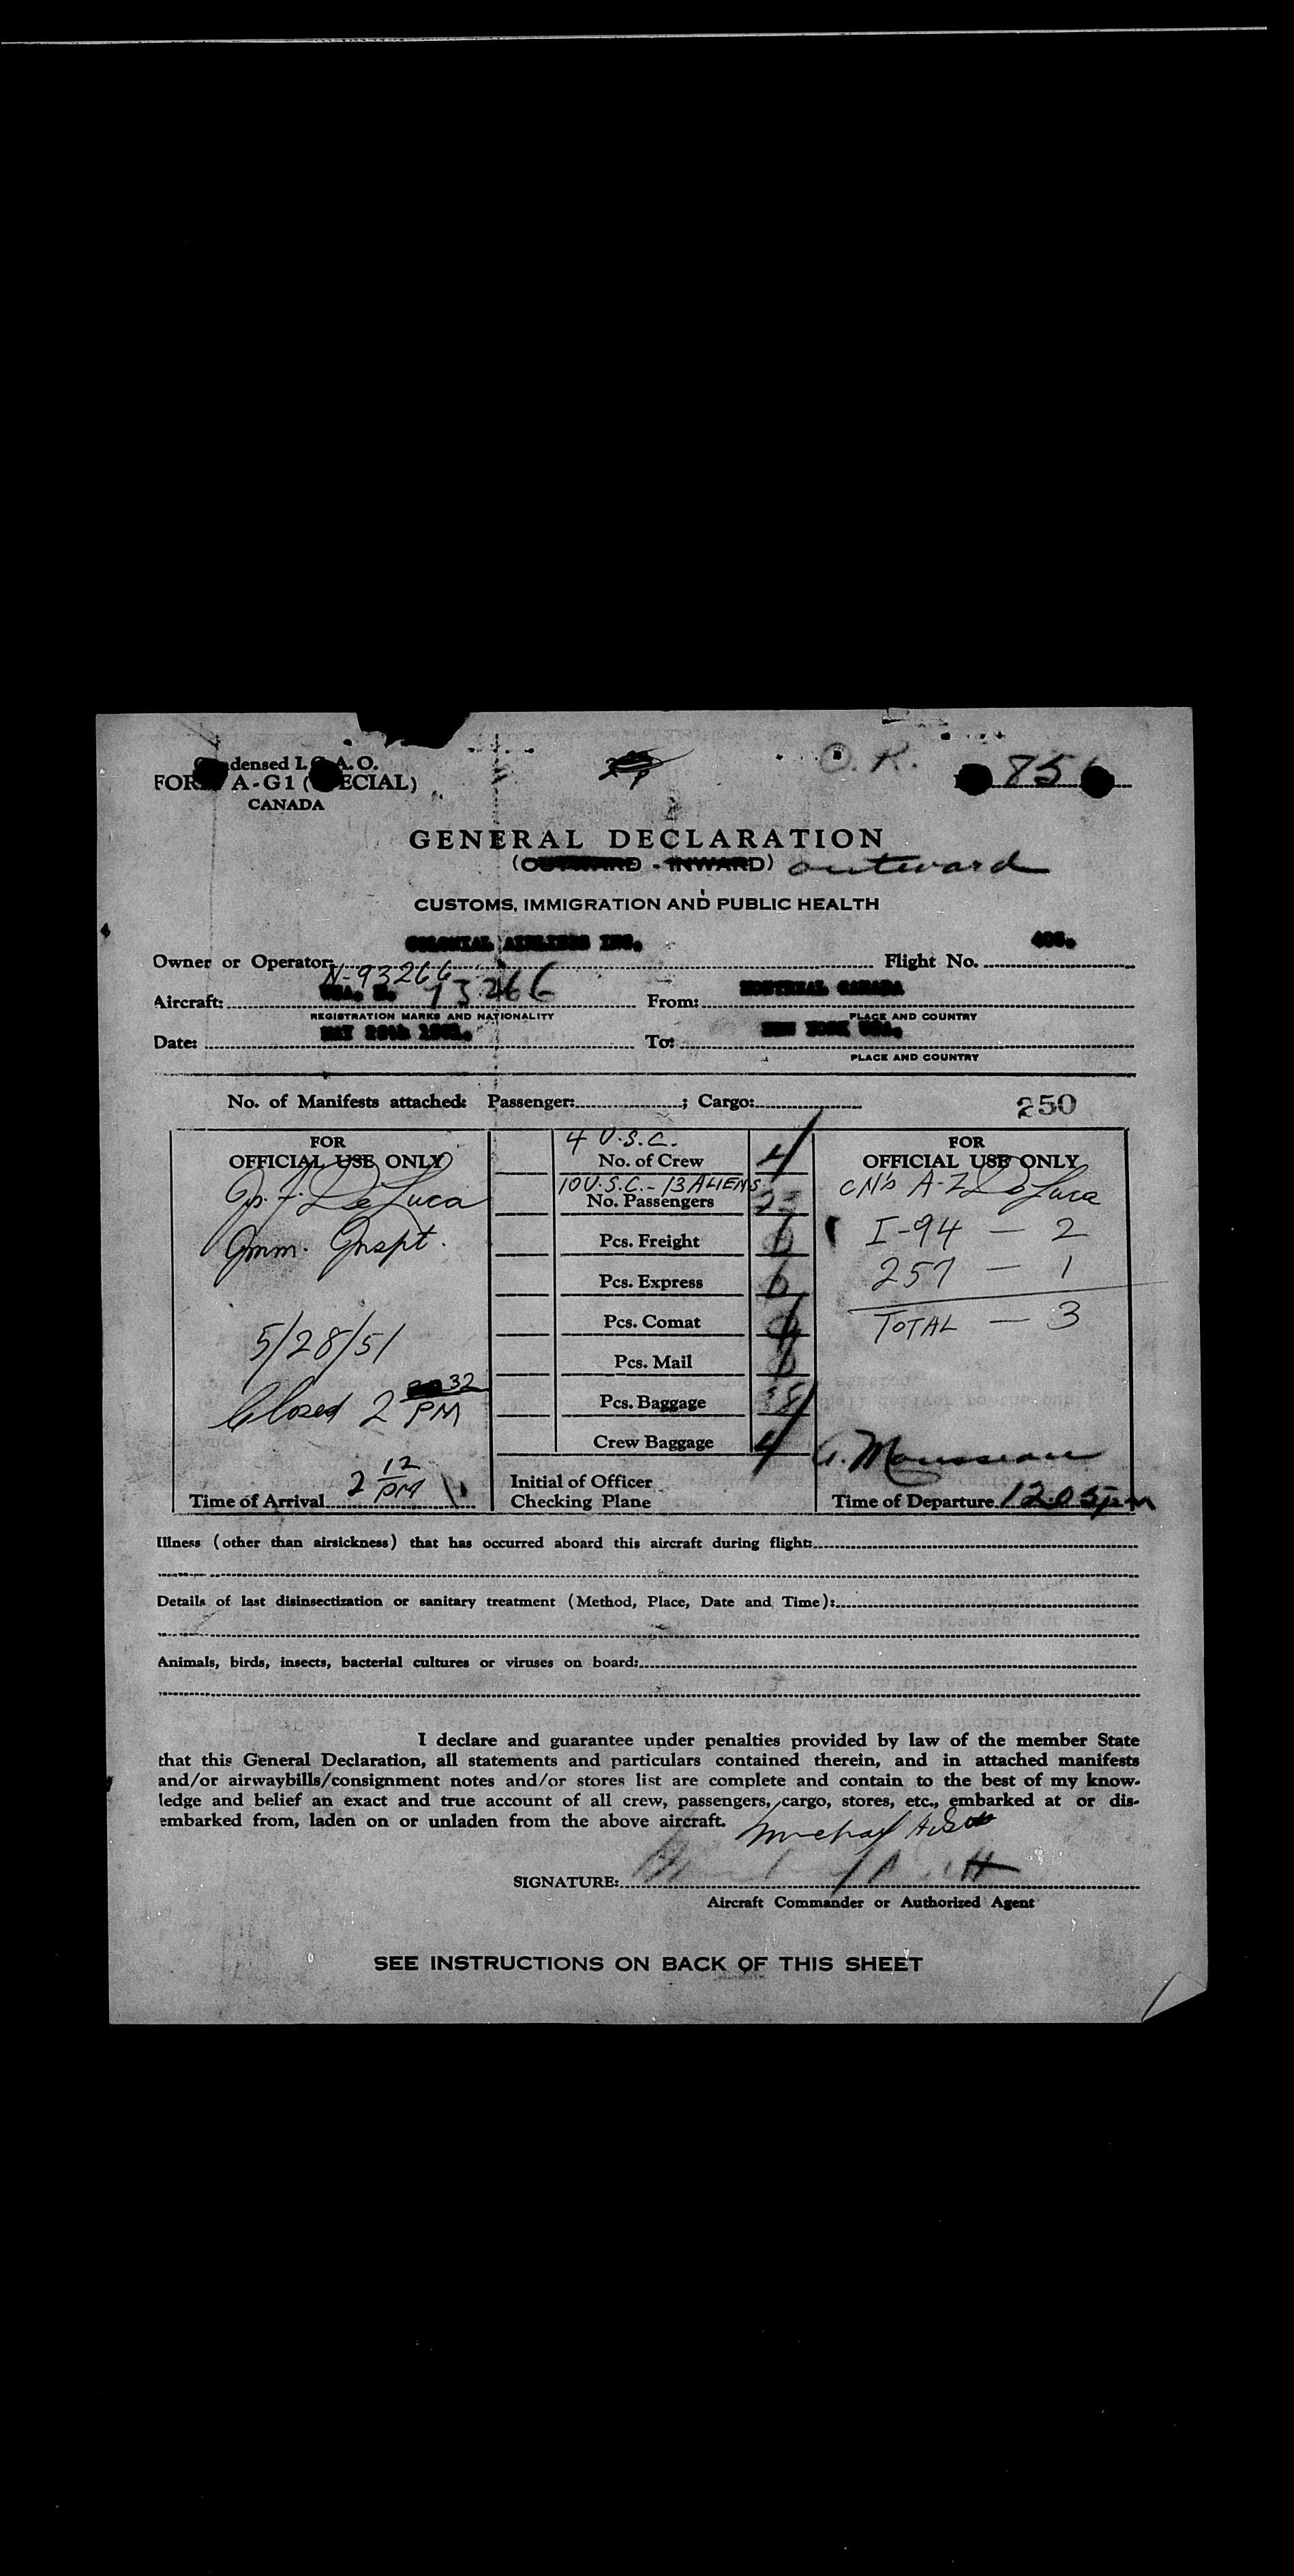 Condensed I.C.A.O.
FORM A-G1 (SPECIAL)
CANADA
O.R.
85
GENERAL DECLARATION
(OUTWARD - INWARD) outward
CUSTOMS, IMMIGRATION AND PUBLIC HEALTH
Owner or Operator: COLONIAL AIRLINES INC. Flight No.
N-93266
Aircraft: USA. N. 93266 From: MONTREAL CANADA
REGISTRATION MARKS AND NATIONALITY PLACE AND COUNTRY
Date: MAY 28th 1951. To: NEW YORK USA.
PLACE AND COUNTRY
No. of Manifests attached: Passenger: ; Cargo:
250
FOR
OFFICIAL USE ONLY
De Luca
Imm. Inspt.
5/28/51
Closed 2 32 PM
Time of Arrival 2 12 PM
4 U.S.C.
No. of Crew 4
10 U.S.C. - 13 ALIENS
No. Passengers 23
Pcs. Freight
Pcs. Express
Pcs. Comat
Pcs. Mail
Pcs. Baggage
Crew Baggage 4
Initial of Officer
Checking Plane
FOR
OFFICIAL USE ONLY
A-Z De Luca
I-94 — 2
257 — 1
TOTAL — 3
A. Mousseau
Time of Departure 12.05pm
Illness (other than airsickness) that has occurred aboard this aircraft during flight:
Details of last disinsectization or sanitary treatment (Method, Place, Date and Time):
Animals, birds, insects, bacterial cultures or viruses on board:
I declare and guarantee under penalties provided by law of the member State
that this General Declaration, all statements and particulars contained therein, and in attached manifests
and/or airwaybills/consignment notes and/or stores list are complete and contain to the best of my know-
ledge and belief an exact and true account of all crew, passengers, cargo, stores, etc., embarked at or dis-
embarked from, laden on or unladen from the above aircraft.
SIGNATURE:
Aircraft Commander or Authorized Agent
SEE INSTRUCTIONS ON BACK OF THIS SHEET